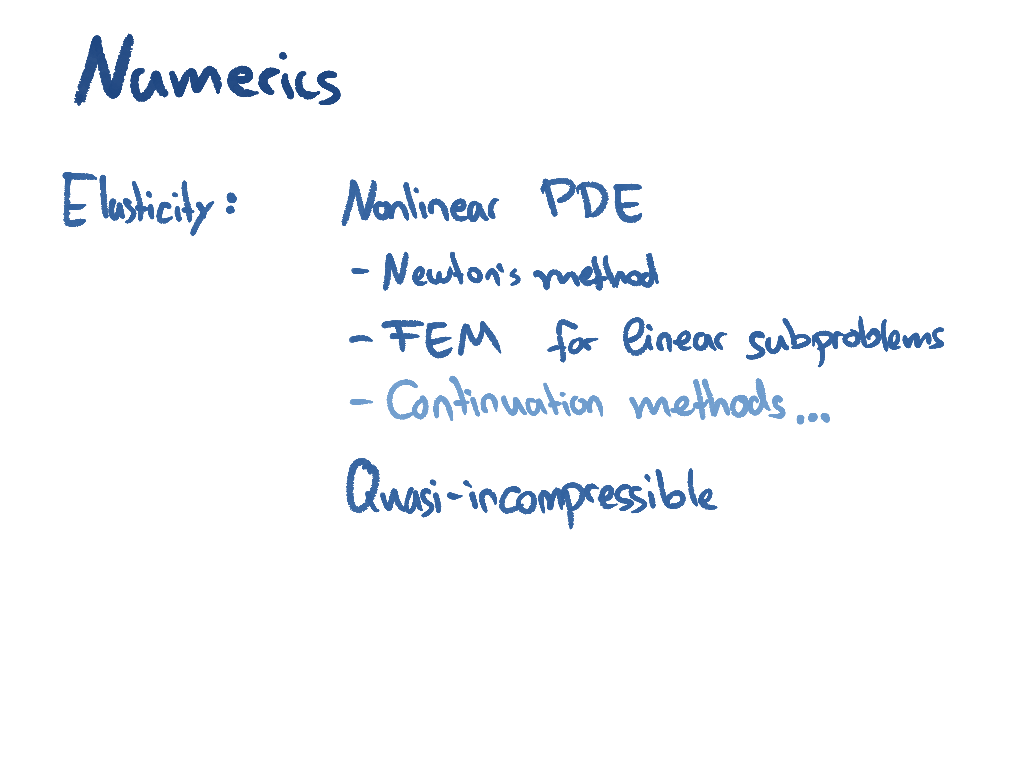 Numerics
Elasticity: Nonlinear PDE
- Newton's method
- FEM for linear subproblems
- Continuation methods...
Quasi-incompressible